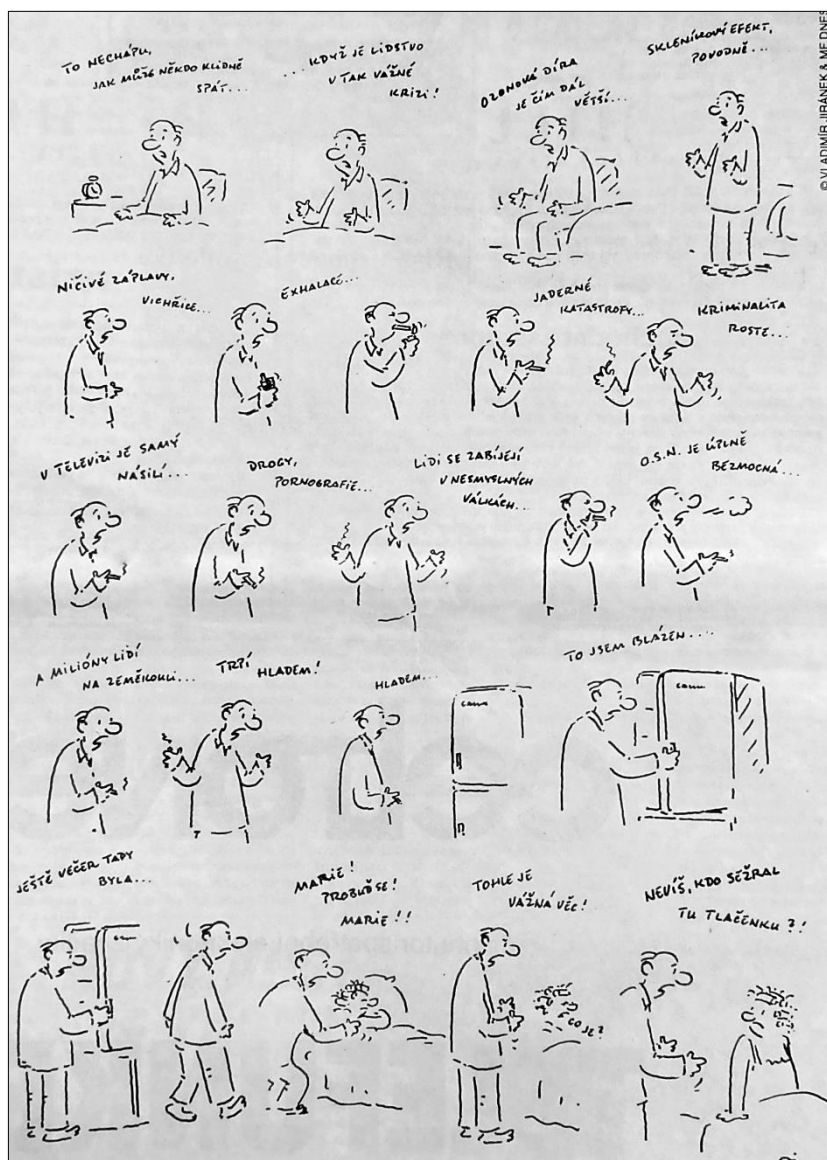 TO NECHÁPU,
JAK MŮŽE NĚKDO KLIDNĚ
SPÁT...
...KDYŽ JE LIDSTVO
V TAK VÁŽNÉ
KRIZI!
OZONOVÁ DÍRA
JE ČÍM DÁL
VĚTŠÍ...
SKLENÍKOVÝ EFEKT,
POVODNĚ...
© VLADIMÍR JIRÁNEK & MF DNES
NIČIVÉ ZÁPLAVY,
VICHŘICE...
EXHALACE...
JADERNÉ
KATASTROFY...
KRIMINALITA
ROSTE...
V TELEVIZI JE SAMÝ
NÁSILÍ...
DROGY,
PORNOGRAFIE...
LIDI SE ZABÍJEJÍ
V NESMYSLNÝCH
VÁLKÁCH...
O.S.N. JE ÚPLNĚ
BEZMOCNÁ...
A MILIÓNY LIDÍ
NA ZEMĚKOULI...
TRPÍ
HLADEM!
HLADEM...
TO JSEM BLÁZEN....
JEŠTĚ VEČER TADY
BYLA...
MARIE!
PROBUĎ SE!
MARIE!!
TOHLE JE
VÁŽNÁ VĚC!
CO JE?
NEVÍŠ, KDO SEŽRAL
TU TLAČENKU?!